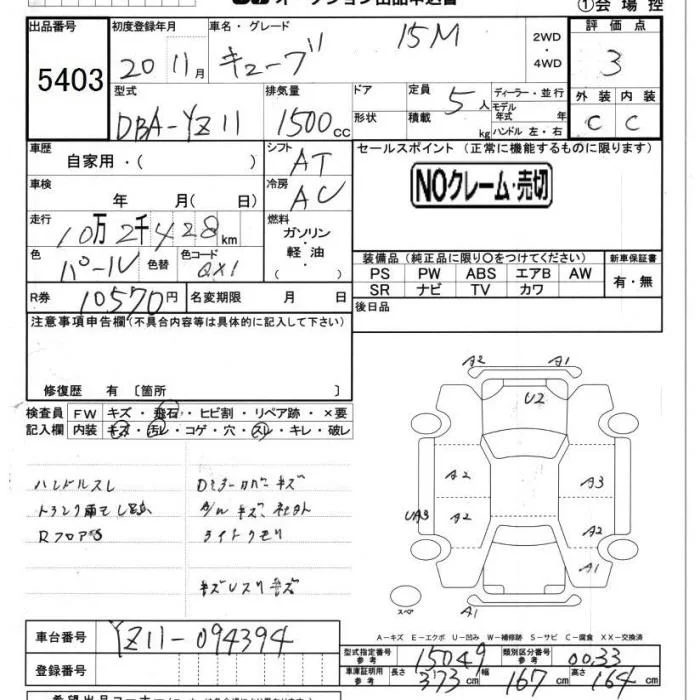 ①会場控
出品番号 5403
初度登録年月 20 11月
車名・グレード キューブ 15M
2WD・4WD
評価点 3
型式 DBA-YZ11
排気量 1500cc
ドア 形状
定員 5人
積載 kg
ディーラー・並行
モデル年式 年式
ハンドル 左・右
外装 内装
C C
車歴 自家用・( )
シフト AT
セールスポイント(正常に機能するものに限ります)
NOクレーム・売切
車検 年 月( 日)
冷房 AC
走行 10万2千428km
燃料 ガソリン・軽油・( )
色 パール 色替 色コード QX1
装備品(純正品に限り○をつけてください)
新車保証書
PS PW ABS エアB AW
有・無
SR ナビ TV カワ
R券 10570円 名変期限 月 日
後日品
注意事項申告欄(不具合内容等は具体的に記入して下さい)
修復歴 有〔箇所 〕
検査員 FW キズ・飛石・ヒビ割・リペア跡・×要
記入欄 内装 キズ・汚レ・コゲ・穴・スレ・キレ・破レ
A2 A1
U2
A2 A3
UA3 A2 A2
A1
スペ A1
ハンドルスレ
ライトクモリ
A-キズ E-エクボ U-凹み W-補修跡 S-サビ C-腐食 XX-交換済
車台番号 YZ11-094394
型式指定番号 参考 15049 類別区分番号 参考 0033
登録番号
車庫証明用 参考 長さ 373cm 幅 167cm 高さ 164cm